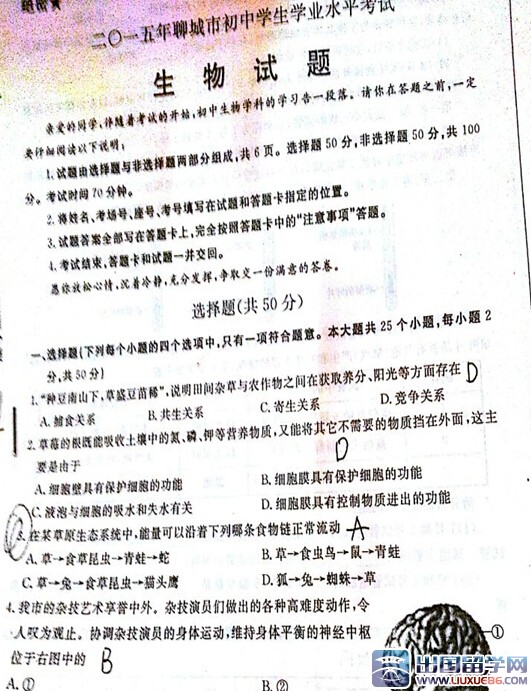 二〇一五年聊城市初中学生学业水平考试
生 物 试 题
亲爱的同学,伴随着考试的开始,初中生物学科的学习告一段落。请你在答题之前,一定
要仔细阅读以下说明:
1.试题由选择题与非选择题两部分组成,共6页。选择题50分,非选择题50分,共100
分。考试时间70分钟。
2.将姓名、考场号、座号、考号填写在试题和答题卡指定的位置。
3.试题答案全部写在答题卡上,完全按照答题卡中的“注意事项”答题。
4.考试结束,答题卡和试题一并交回。
愿你放松心情,沉着冷静,充分发挥,争取交一份满意的答卷。
选择题(共50分)
一、选择题(下列每个小题的四个选项中,只有一项符合题意。本大题共25个小题,每小题2
分,共50分)
1.“种豆南山下,草盛豆苗稀”,说明田间杂草与农作物之间在获取养分、阳光等方面存在 D
A.捕食关系 B.共生关系 C.寄生关系 D.竞争关系
2.草莓的根既能吸收土壤中的氮、磷、钾等营养物质,又能将其它不需要的物质挡在外面,这主
要是由于 D
A.细胞壁具有保护细胞的功能 B.细胞膜具有保护细胞的功能
C.液泡与细胞的吸水和失水有关 D.细胞膜具有控制物质进出的功能
3.在某草原生态系统中,能量可以沿着下列哪条食物链正常流动 A
A.草→食草昆虫→青蛙→蛇 B.草→食虫鸟→鼠→青蛙
C.草→兔→食草昆虫→猫头鹰 D.狐→兔→蜘蛛→草
4.我市的杂技艺术享誉中外。杂技演员们做出的各种高难度动作,令
人叹为观止。协调杂技演员的身体运动,维持身体平衡的神经中枢
位于右图中的 B
①
A.① B.②
出国留学网
www.liuxue86.com